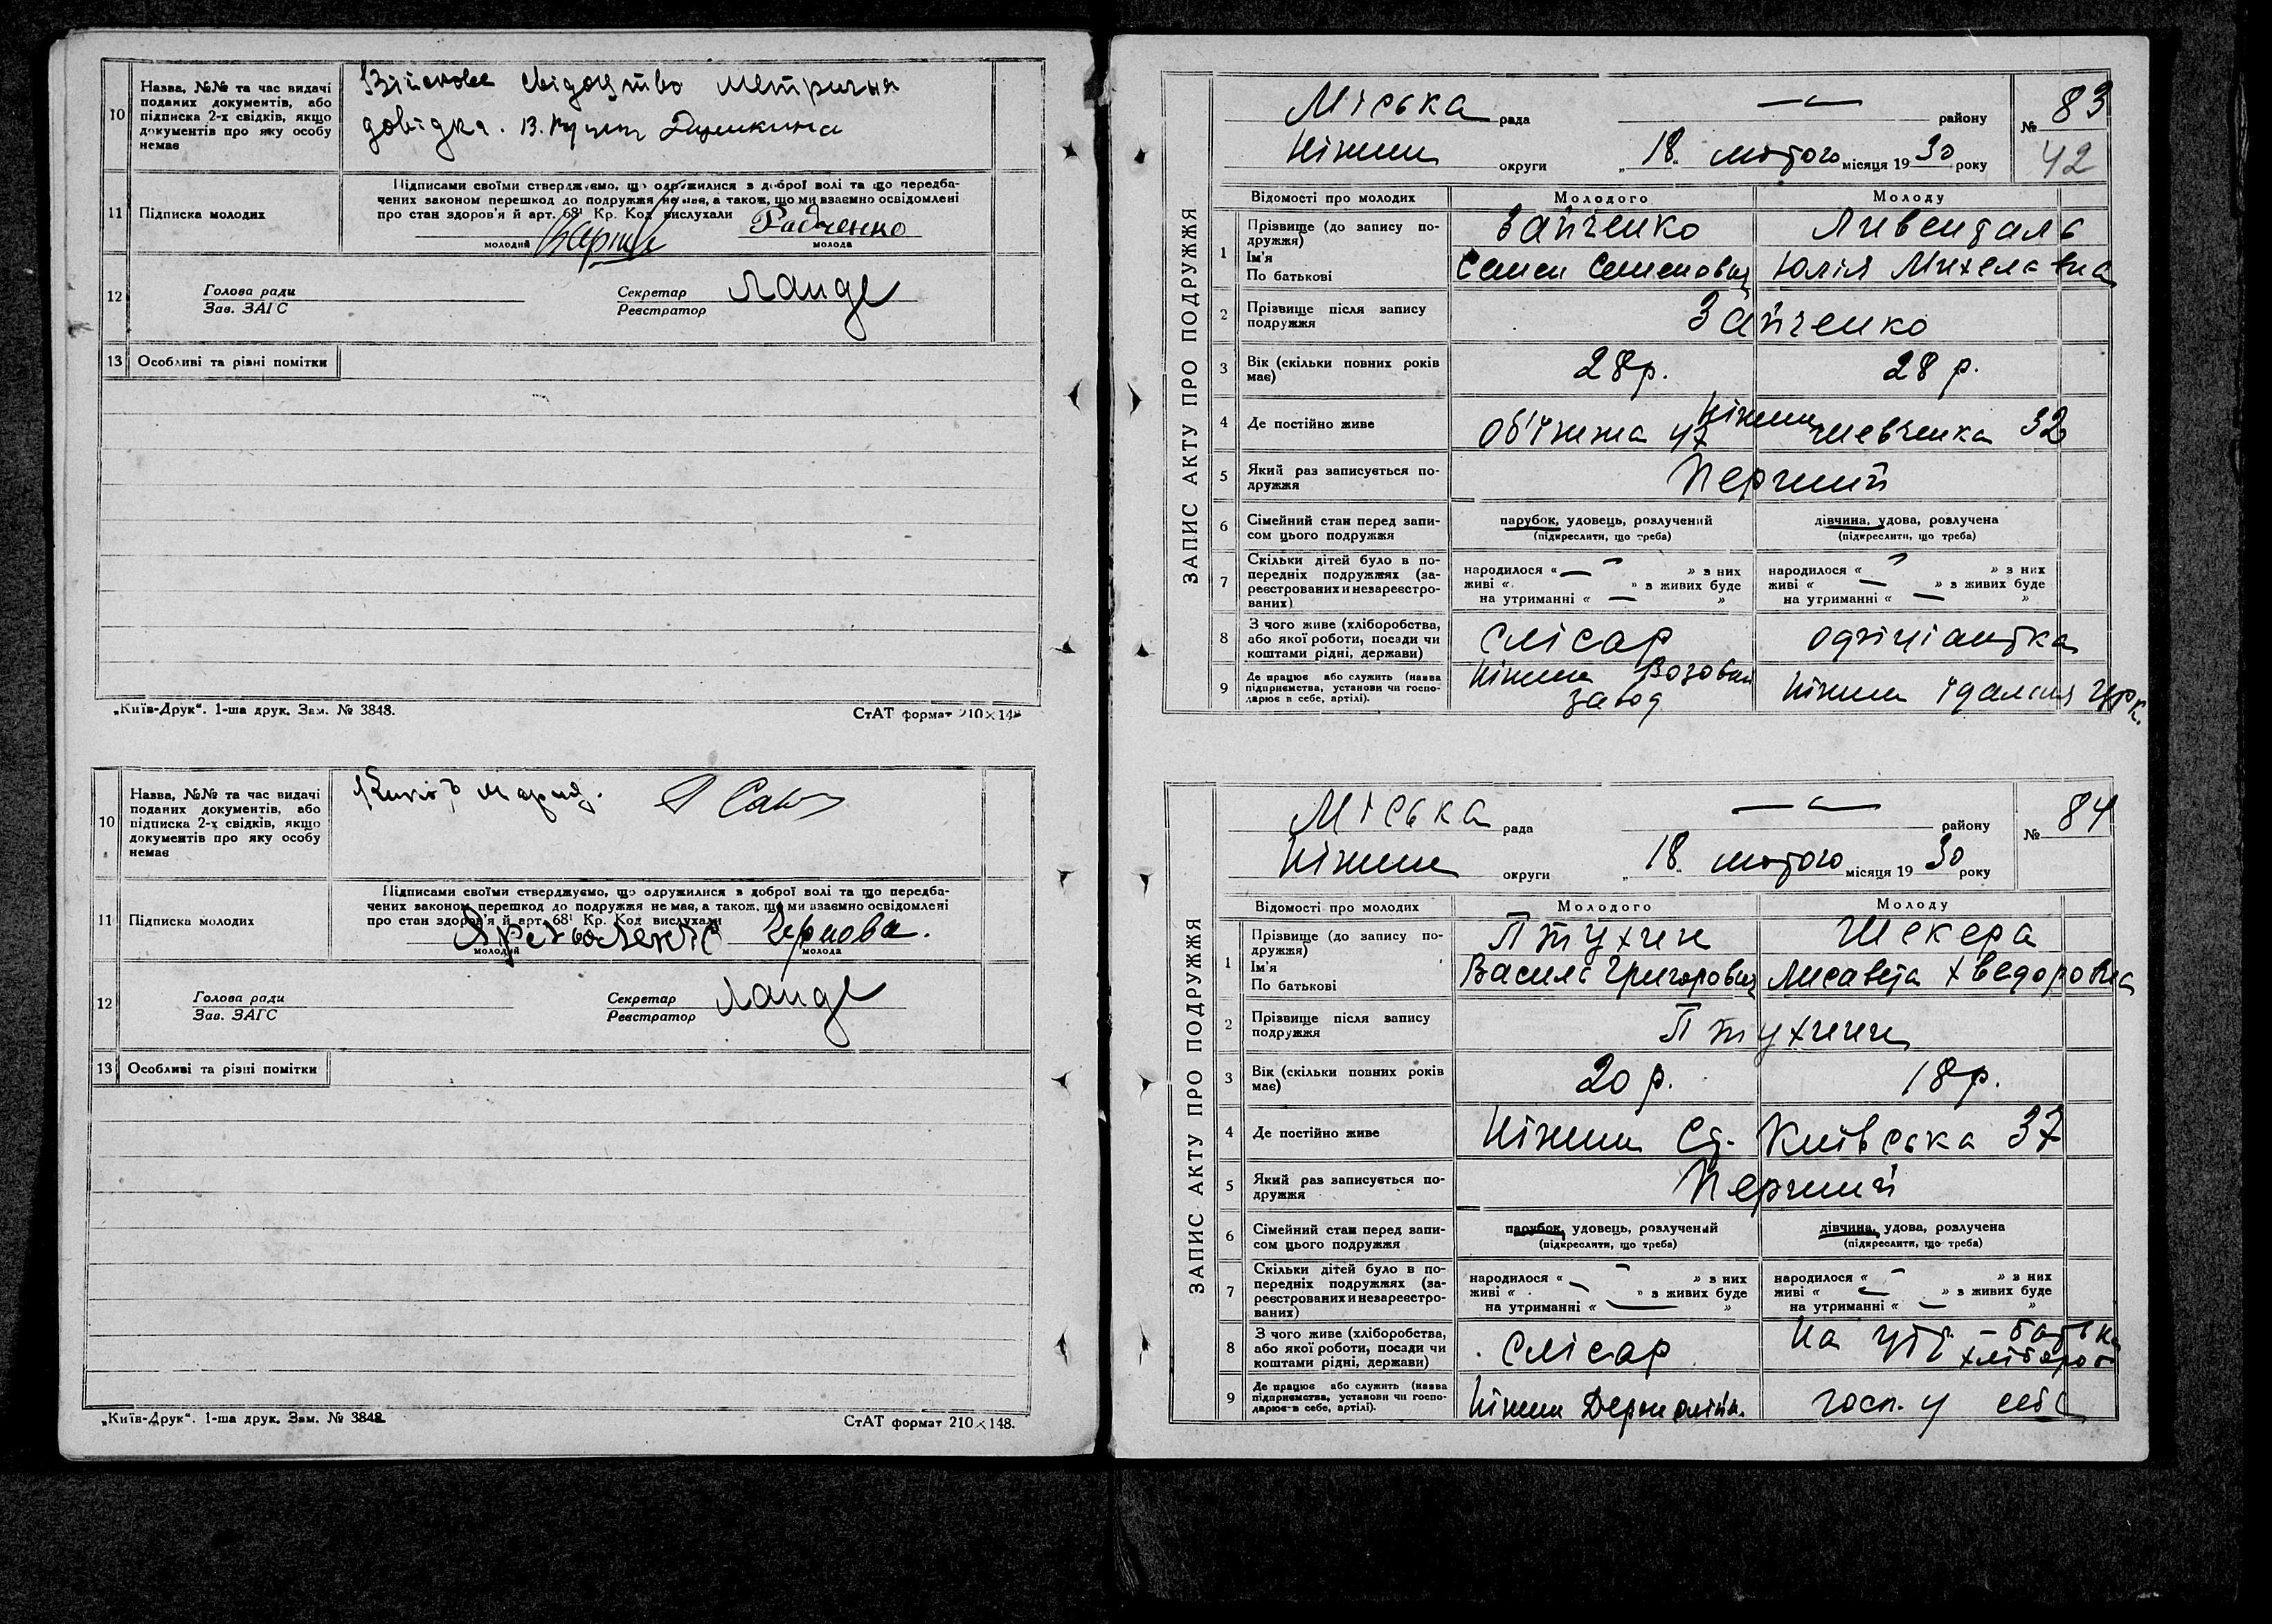 10
Назва, №№ та час видачі
поданих документів, або
підписка 2-х свідків, якщо
документів про яку особу
немає
Військове свідоцтво метрична
довідка.
11
Підписка молодих
Підписами своїми стверджуємо, що одружилися з доброї волі та що передба-
чених законом перешкод до подружжя не має, а також, що ми взаємно освідомлені
про стан здоров'я й арт. 68¹ Кр. Код вислухали
Радченко
молодий
молода
12
Голова ради
Зав. ЗАГС
Секретар
Реєстратор
Ланде
13
Особливі та різні помітки
„Київ-Друк“. 1-ша друк. Зам. № 3848.
СтАТ формат 210×148
10
Назва, №№ та час видачі
поданих документів, або
підписка 2-х свідків, якщо
документів про яку особу
немає
11
Підписка молодих
Підписами своїми стверджуємо, що одружилися з доброї волі та що передба-
чених законом перешкод до подружжя не має, а також, що ми взаємно освідомлені
про стан здоров'я й арт. 68¹ Кр. Код вислухали
Чернова.
молодий
молода
12
Голова ради
Зав. ЗАГС
Секретар
Реєстратор
Ланде
13
Особливі та різні помітки
„Київ-Друк“. 1-ша друк. Зам. № 3848
СтАТ формат 210×148.
ЗАПИС АКТУ ПРО ПОДРУЖЖЯ
Міська рада
району
№ 83
42
Ніжин округи
„18“ лютого місяця 1930 року
Відомості про молодих
Молодого
Молоду
1
Прізвище (до запису по-
дружжя)
Ім'я
По батькові
Зайченко
Семен Семенович
Ливендаль
Юлія Михелавна
2
Прізвище після запису
подружжя
Зайченко
3
Вік (скільки повних років
має)
28 р.
28 р.
4
Де постійно живе
Об'їжжа 47
Ніжин
Шевченка 32
5
Який раз записується по-
дружжя
Перший
6
Сімейний стан перед запи-
сом цього подружжя
парубок, удовець, розлучений
(підкреслити, що треба)
дівчина, удова, розлучена
(підкреслити, що треба)
7
Скільки дітей було в по-
передніх подружжях (за-
реєстрованих и незареєстро-
ваних)
народилося « — » з них
живі « » з живих буде
на утриманні « — »
народилося « — » з них
живі « — » з живих буде
на утриманні « — »
8
З чого живе (хліборобства,
або якої роботи, посади чи
коштами рідні, держави)
Слісар
Офіціантка
9
Де працює або служить (назва
підприємства, установи чи госпо-
дарює в себе, артілі).
Ніжин Возовий
завод
Ніжин їдальня Церк.
ЗАПИС АКТУ ПРО ПОДРУЖЖЯ
Міська рада
району
№ 84
Ніжин округи
„18“ лютого місяця 1930 року
Відомості про молодих
Молодого
Молоду
1
Прізвище (до запису по-
дружжя)
Ім'я
По батькові
Птухин
Василь Григорович
Шекера
Лисавета Хведоровна
2
Прізвище після запису
подружжя
Птухини
3
Вік (скільки повних років
має)
20 р.
18 р.
4
Де постійно живе
Ніжин Ст. Київська 37
5
Який раз записується по-
дружжя
Перший
6
Сімейний стан перед запи-
сом цього подружжя
парубок, удовець, розлучений
(підкреслити, що треба)
дівчина, удова, розлучена
(підкреслити, що треба)
7
Скільки дітей було в по-
передніх подружжях (за-
реєстрованих и незареєстро-
ваних)
народилося « — » з них
живі « » з живих буде
на утриманні « — »
народилося « — » з них
живі « — » з живих буде
на утриманні « — »
8
З чого живе (хліборобства,
або якої роботи, посади чи
коштами рідні, держави)
Слісар
На утр. - батька
хлібороб
9
Де працює або служить (назва
підприємства, установи чи госпо-
дарює в себе, артілі).
Ніжин
госп. у себе